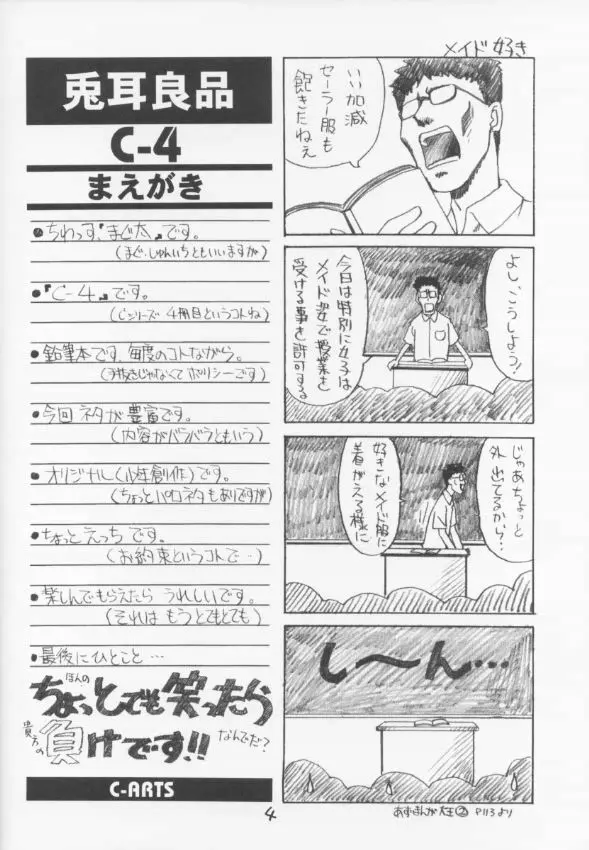 兎耳良品
C-4
まえがき
●ちわっす、『まぐ太』です。
(まぐ・じゅんいちともいいますが)
●『C-4』です。
(Cシリーズ 4冊目というコトね)
●鉛筆本です、毎度のコトながら。
(手抜きじゃなくて ポリシーです)
●今回 ネタが 豊富です。
(内容がバラバラともいう)
●オリジナル(少年創作)です。
(ちょっとパロネタもありですが)
●ちょっと えっち です。
(お約束というコトで…)
●楽しんでもらえたら うれしいです。
(それは もう とてもとても)
●最後にひとこと…
ほんの
ちょっとでも笑ったら
貴方の負けです!!
なんでだ?
C-ARTS
メイド好き
いい加減
セーラー服も
飽きたねえ
よし、こうしよう!
今日は特別に女子は
メイド姿で授業を
受ける事を許可する。
じゃあちょっと
外出てるから…
好きなメイド服に
着がえる様に
し〜ん…
あずまんが大王② P113より
4